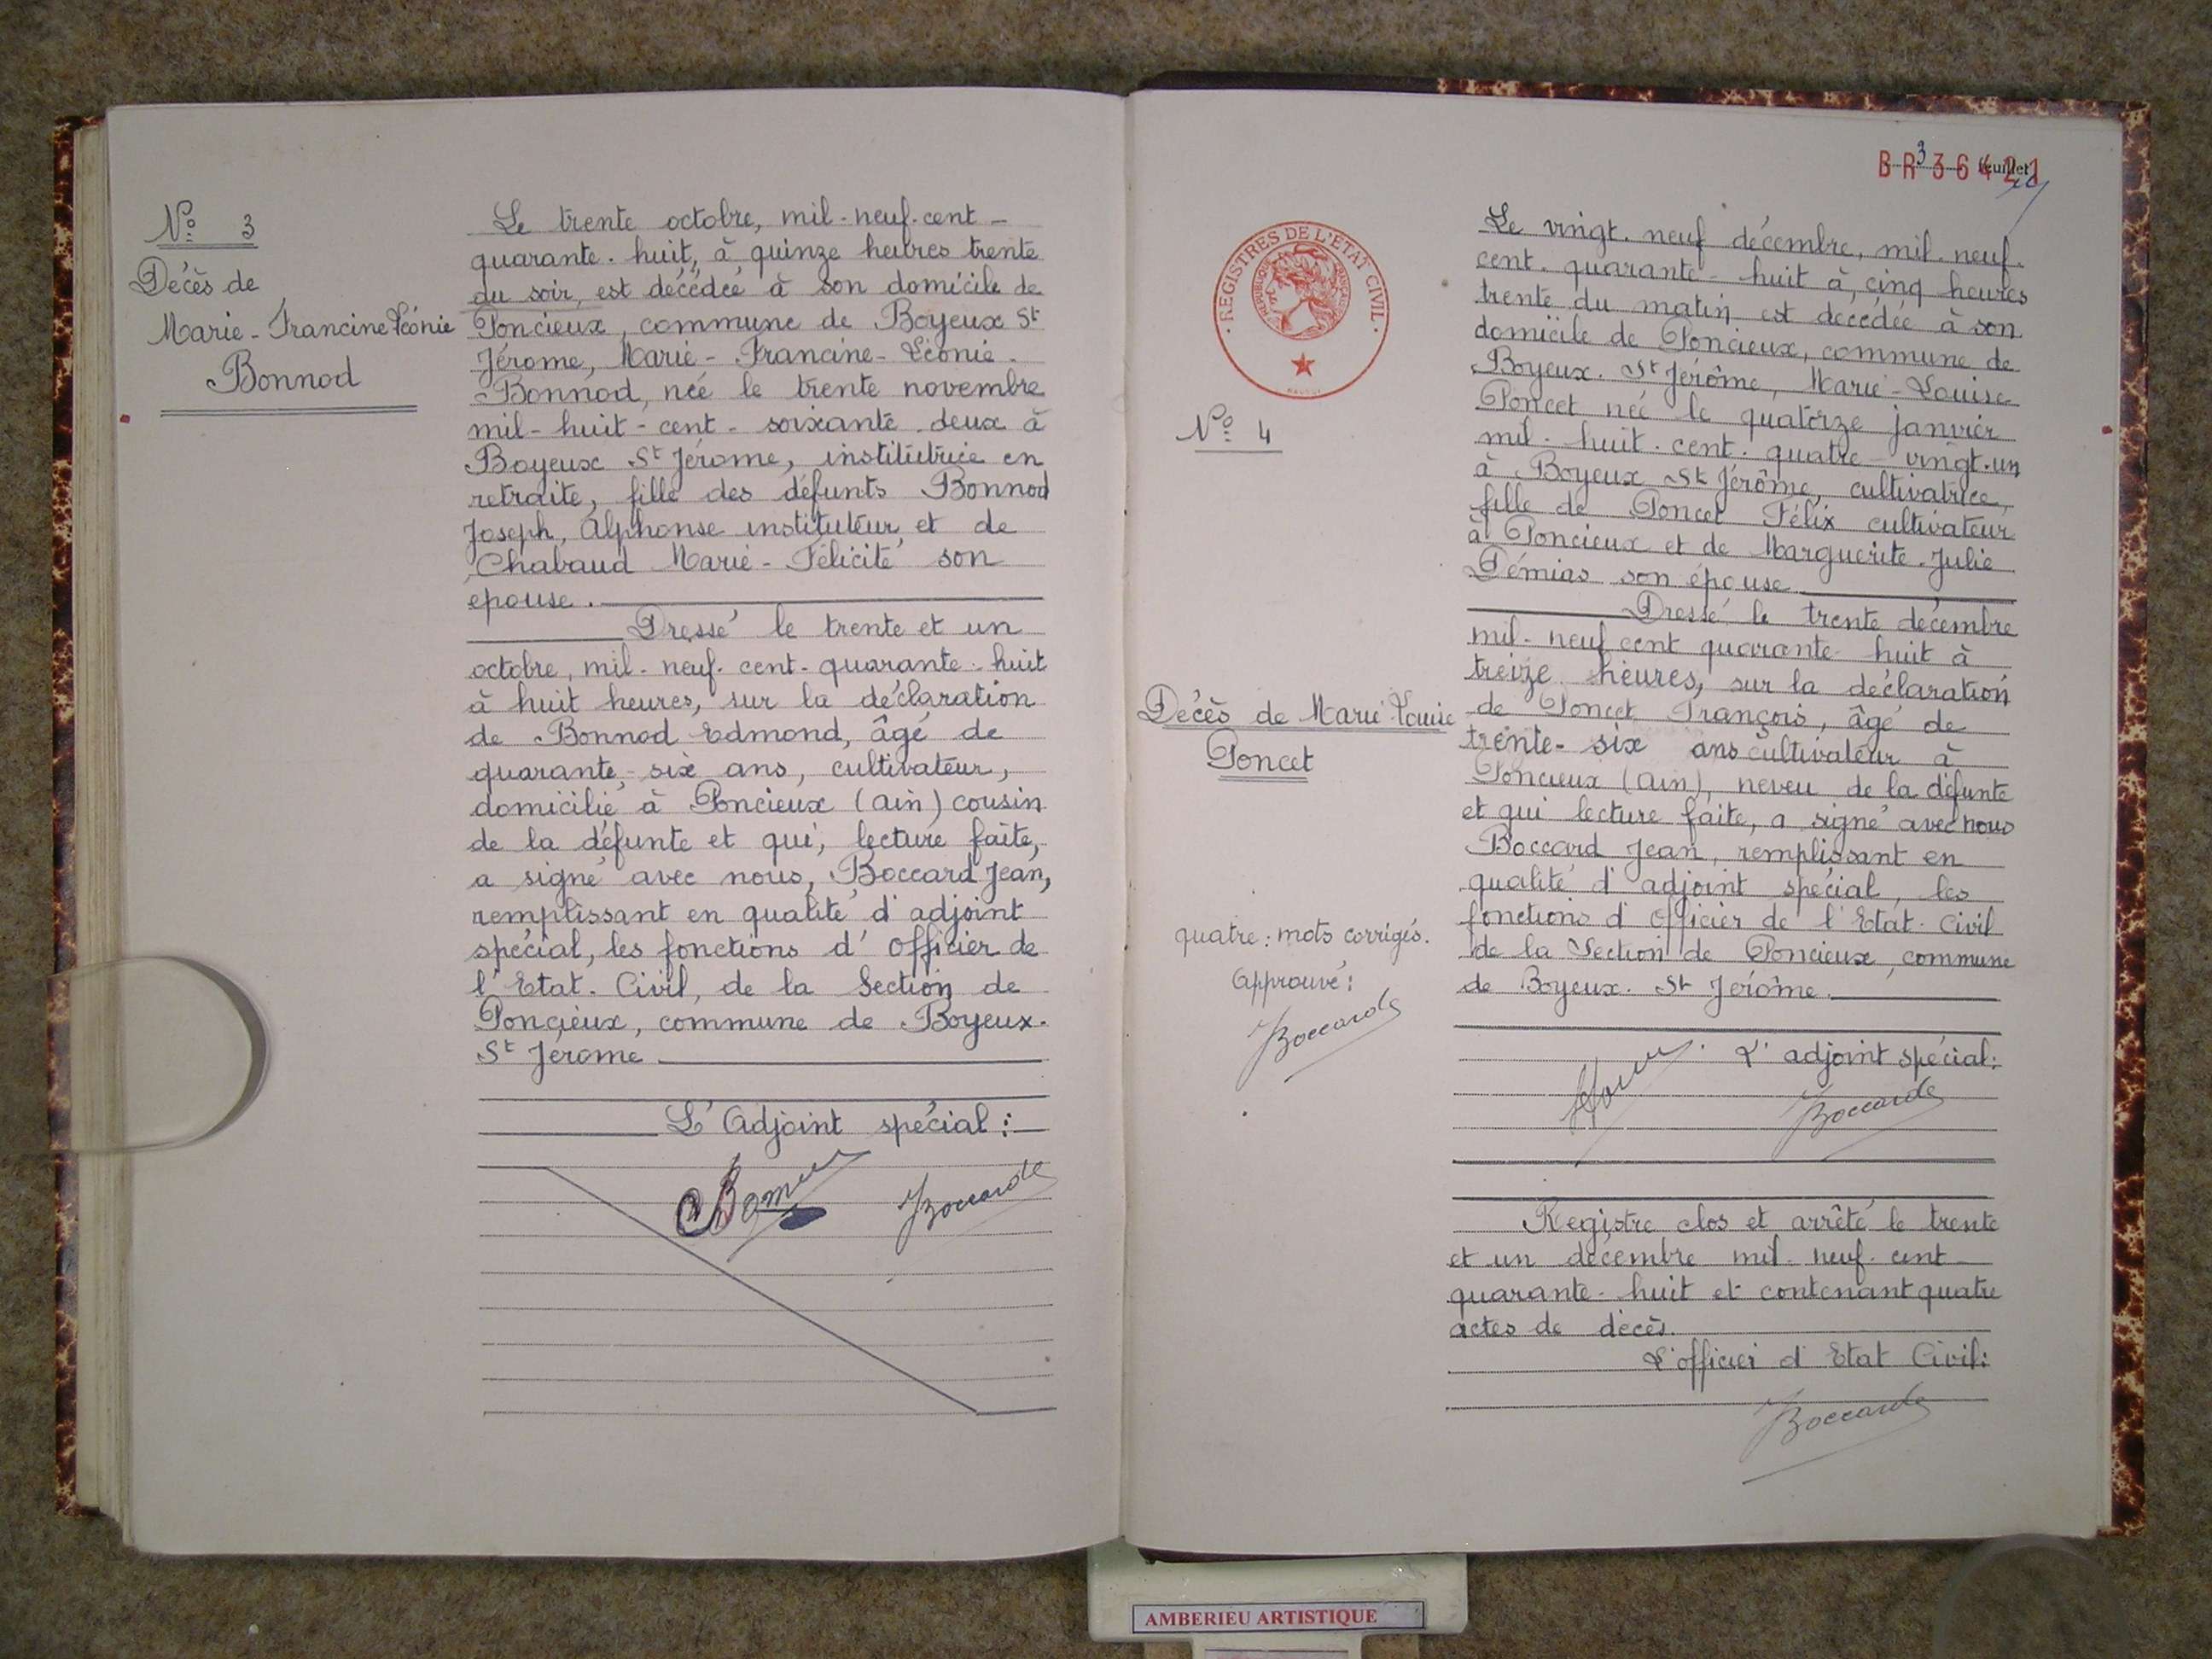 Nº 3
Décès de
Marie-Francine Léonie
Bonnod
Le trente octobre, mil-neuf-cent-
quarante-huit, à quinze heures trente
du soir, est décédée à son domicile de
Poncieux, commune de Boyeux St
Jérome, Marie-Francine-Léonie
Bonnod, née le trente novembre
mil-huit-cent-soixante-deux à
Boyeux St Jérome, institutrice en
retraite, fille des défunts Bonnod
Joseph, Alphonse instituteur, et de
Chabaud Marie-Félicité son
epouse.
Dressé le trente et un
octobre, mil-neuf-cent-quarante-huit
à huit heures, sur la déclaration
de Bonnod Edmond, âgé de
quarante-six ans, cultivateur,
domicilié à Poncieux (ain) cousin
de la défunte et qui, lecture faite,
a signé avec nous, Boccard Jean,
remplissant en qualité d'adjoint
spécial, les fonctions d'Officier de
l'Etat-Civil, de la Section de
Poncieux, commune de Boyeux-
St Jérome
L'Adjoint spécial :
Boccard
BR 36421
3
feuillet
REGISTRES DE L'ETAT CIVIL
REPUBLIQUE FRANÇAISE
Nº 4
Décès de Marie Louise
Poncet
quatre : mots corrigés.
Approuvé :
Boccard
Le vingt-neuf décembre, mil-neuf-
cent-quarante-huit à, cinq heures
trente du matin est décédée à son
domicile de Poncieux, commune de
Boyeux-St Jérôme, Marie-Louise
Poncet née le quatorze janvier
mil-huit-cent-quatre-vingt-un
à Boyeux St Jérôme, cultivatrice,
fille de Poncet Félix cultivateur
à Poncieux et de Marguerite-Julie
Démias son épouse
Dressé le trente décembre
mil-neuf cent quarante-huit à
treize heures, sur la déclaration
de Poncet François, âgé de
trente-six ans cultivateur à
Poncieux (ain), neveu de la défunte
et qui lecture faite, a signé avec nous
Boccard Jean, remplissant en
qualité d'adjoint spécial, les
fonctions d'Officier de l'Etat-Civil
de la Section de Poncieux, commune
de Boyeux-St Jérôme.
L'adjoint spécial :
Boccard
Registre clos et arrêté le trente
et un décembre mil-neuf-cent-
quarante-huit et contenant quatre
actes de décès.
L'officier d'Etat Civil :
Boccard
AMBERIEU ARTISTIQUE